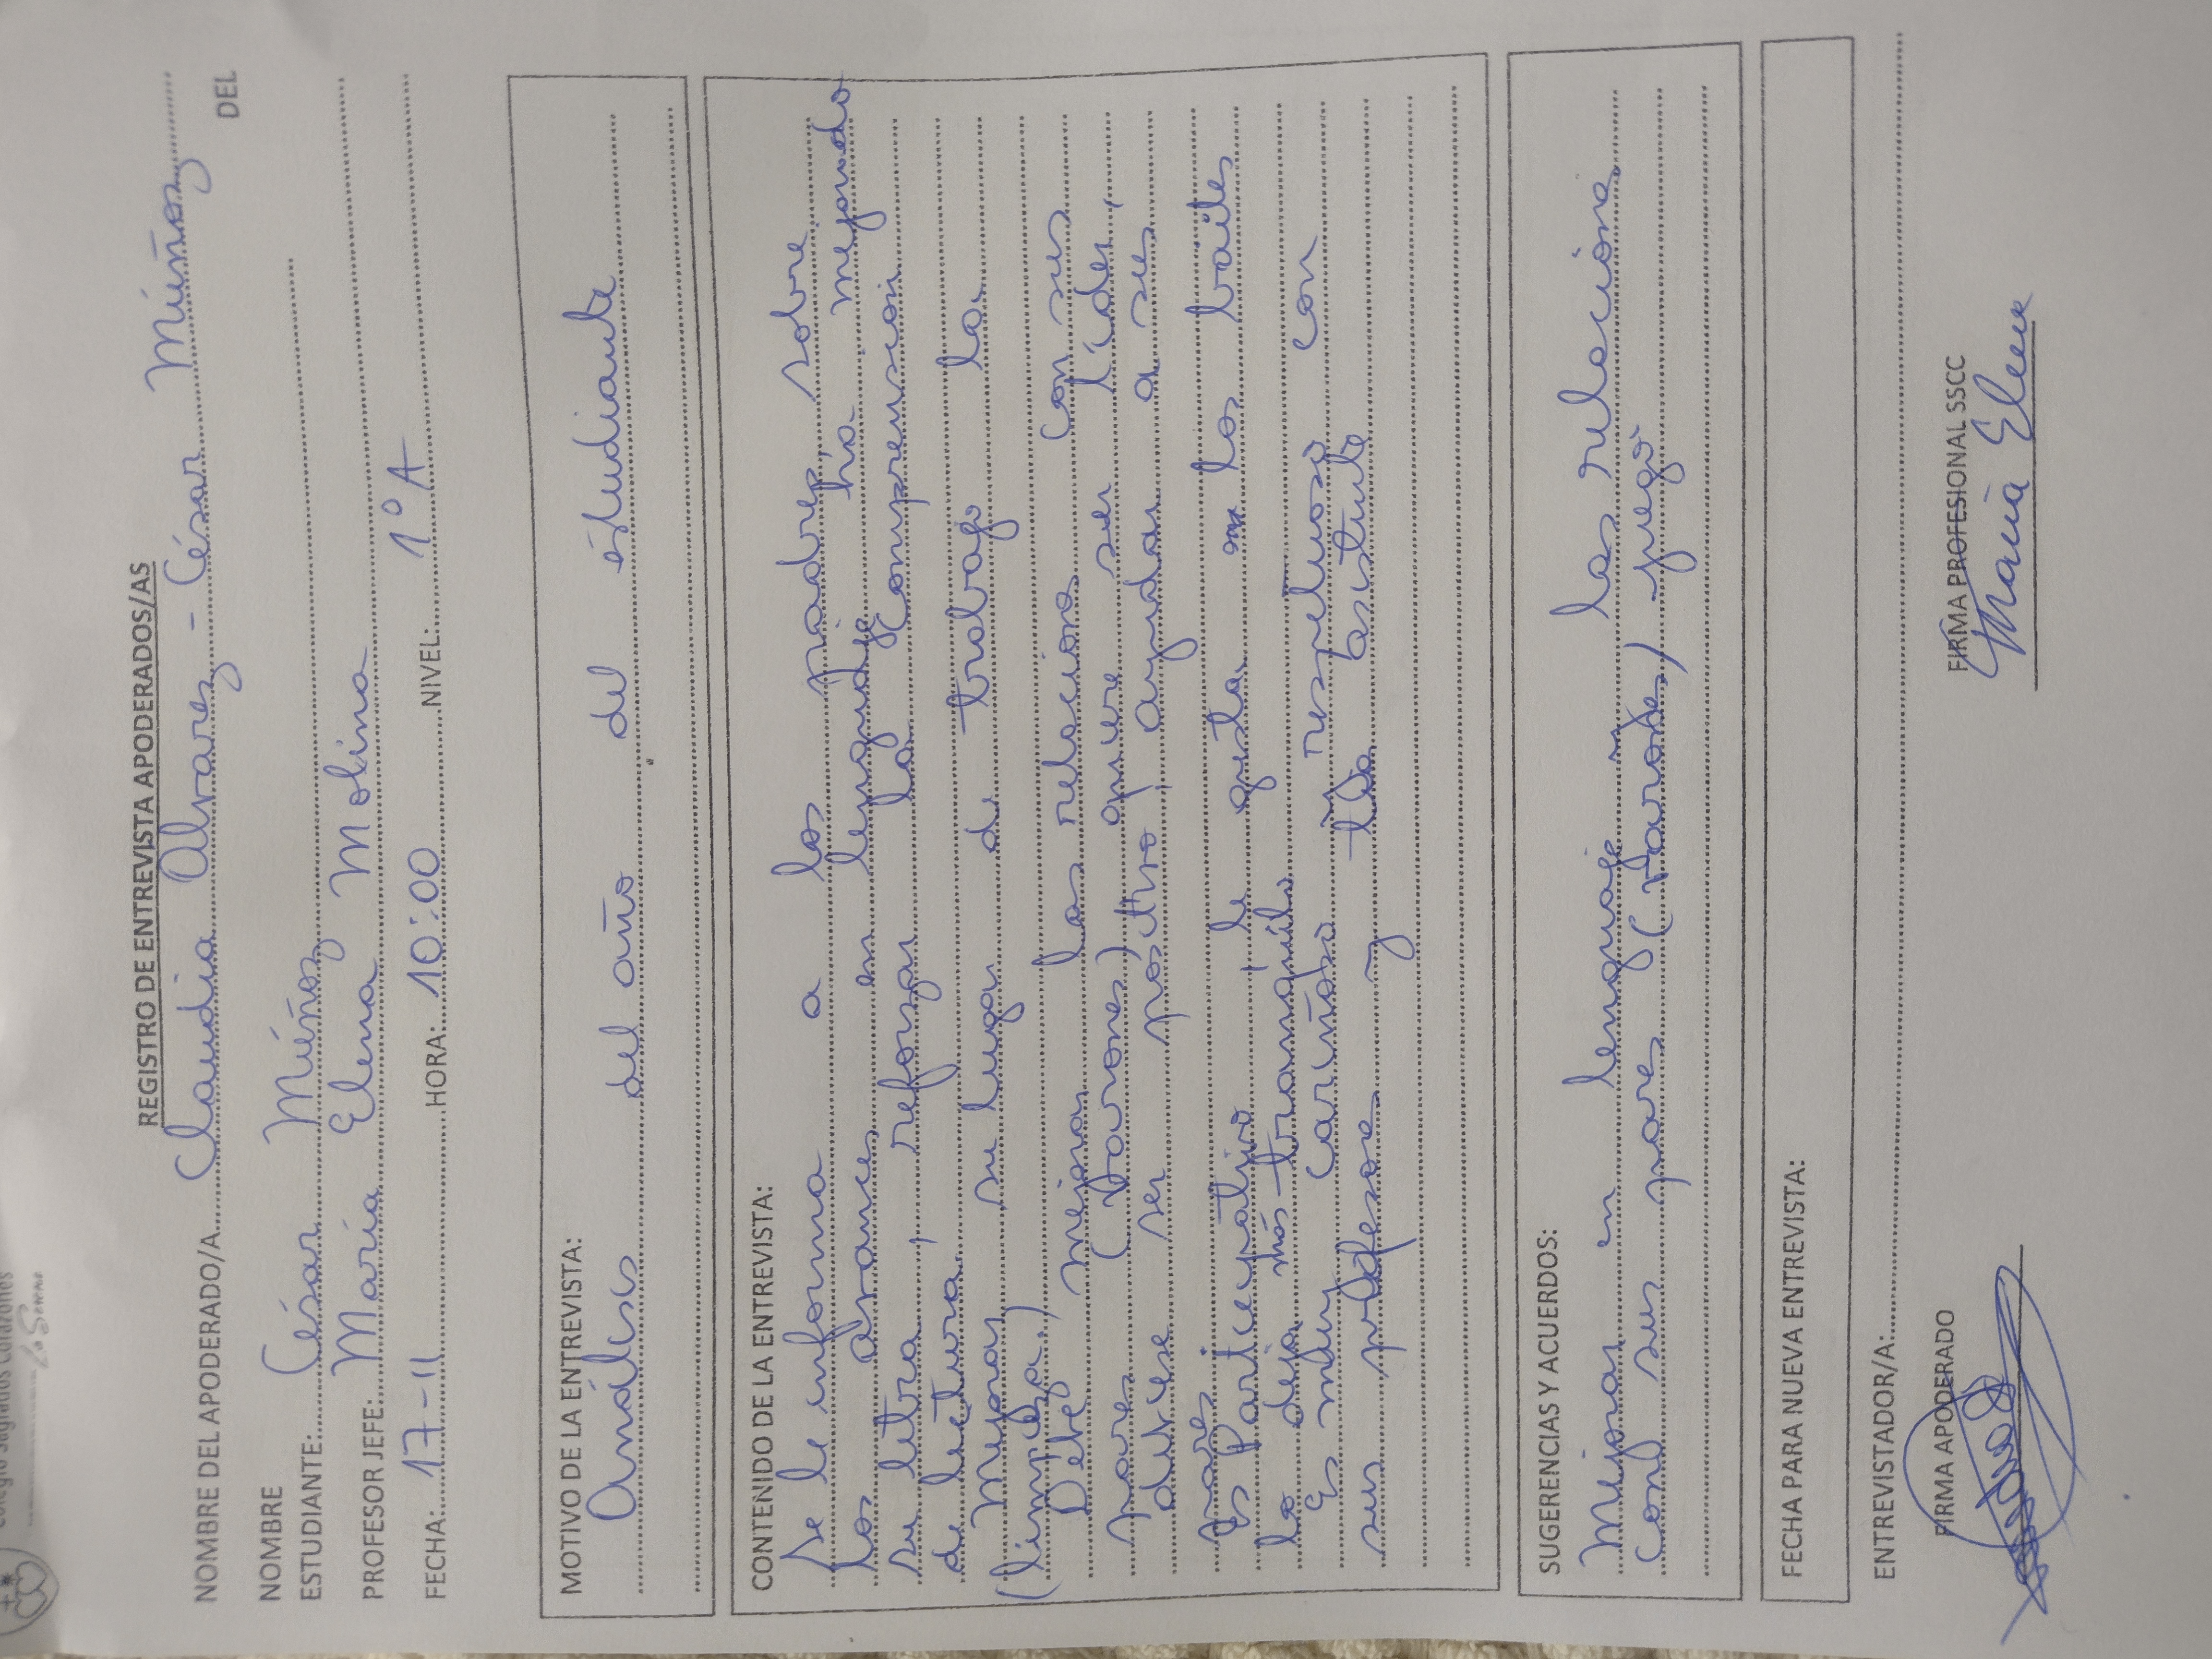 Colegio Sagrados Corazones
La Serena
REGISTRO DE ENTREVISTA APODERADOS/AS
NOMBRE DEL APODERADO/A Claudia Alvarez - César Múñoz
NOMBRE DEL
ESTUDIANTE: César Múñoz
PROFESOR JEFE: María Elena Molina
FECHA: 17-11 HORA: 10:00 NIVEL: 1º A
MOTIVO DE LA ENTREVISTA:
Análisis del año del estudiante
CONTENIDO DE LA ENTREVISTA:
Se le informa a los padres sobre
los avances en lenguaje ha mejorado
su letra, reforzar la comprensión
de lectura,
Mejorar su lugar de trabajo la
(limpieza.)
Debe mejorar las relaciones con sus
pares (varones) quiere ser líder,
debiese ser positivo, ayudar a sus
pares
Es Participativo, le gusta los bailes
lo deja más tranquilo
Es muy cariñoso y respetuoso con
sus profesores y tía asistente
SUGERENCIAS Y ACUERDOS:
Mejorar en lenguaje y las relaciones
con sus pares (varones) juego
FECHA PARA NUEVA ENTREVISTA:
ENTREVISTADOR/A:
FIRMA APODERADO FIRMA PROFESIONAL SSCC
María Elena